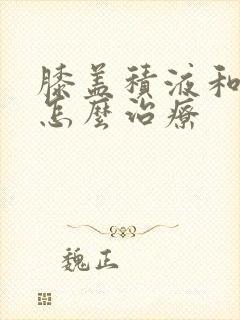 膝盖積液和
怎麽治療
魏正